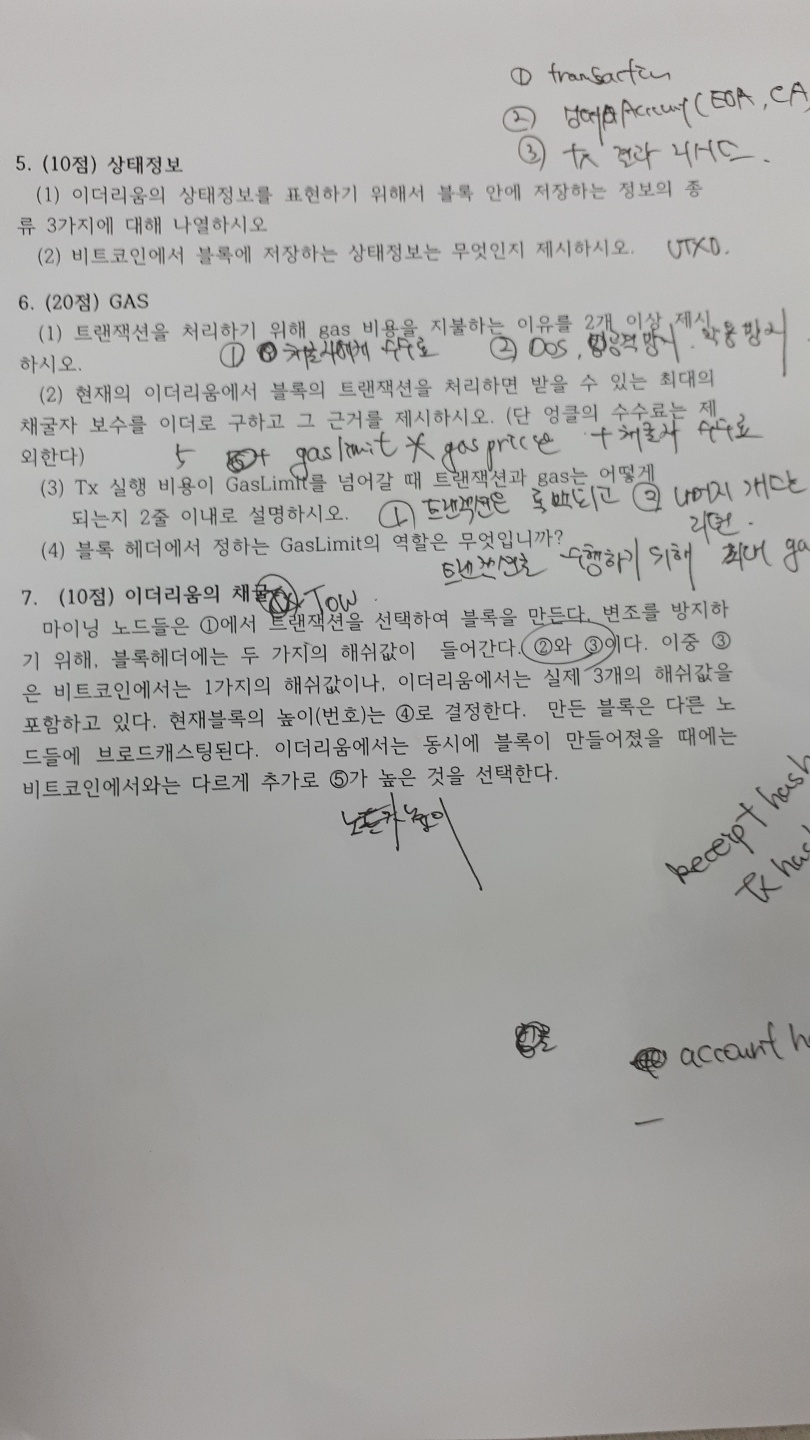 ① transaction
② Account(EOA, CA)
③ tx 결과 리스트.
5. (10점) 상태정보
(1) 이더리움의 상태정보를 표현하기 위해서 블록 안에 저장하는 정보의 종
류 3가지에 대해 나열하시오
(2) 비트코인에서 블록에 저장하는 상태정보는 무엇인지 제시하시오. UTXO.
6. (20점) GAS
(1) 트랜잭션을 처리하기 위해 gas 비용을 지불하는 이유를 2개 이상 제시
하시오. ① 채굴자에게 수수료 ② DOS, 방지. 악용 방지
(2) 현재의 이더리움에서 블록의 트랜잭션을 처리하면 받을 수 있는 최대의
채굴자 보수를 이더로 구하고 그 근거를 제시하시오. (단 엉클의 수수료는 제
외한다) 5 + gas limit * gas price + 채굴자 수수료
(3) Tx 실행 비용이 GasLimit를 넘어갈 때 트랜잭션과 gas는 어떻게
되는지 2줄 이내로 설명하시오. ① 트랜잭션은 롤백되고 ② 나머지 가스는
리턴.
(4) 블록 헤더에서 정하는 GasLimit의 역할은 무엇입니까?
트랜잭션을 수행하기 위해 최대 ga
7. (10점) 이더리움의 채굴
마이닝 노드들은 ①에서 트랜잭션을 선택하여 블록을 만든다. 변조를 방지하
기 위해, 블록헤더에는 두 가지의 해쉬값이 들어간다. ②와 ③이다. 이중 ③
은 비트코인에서는 1가지의 해쉬값이나, 이더리움에서는 실제 3개의 해쉬값을
포함하고 있다. 현재블록의 높이(번호)는 ④로 결정한다. 만든 블록은 다른 노
드들에 브로드캐스팅된다. 이더리움에서는 동시에 블록이 만들어졌을 때에는
비트코인에서와는 다르게 추가로 ⑤가 높은 것을 선택한다.
receipt hash
tx hash
account h